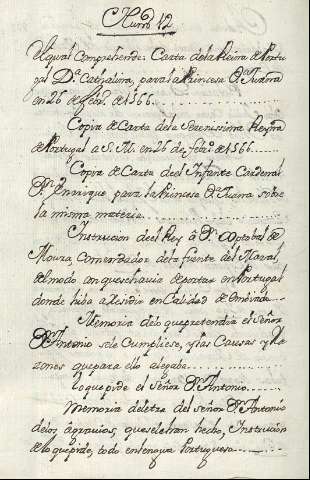 Num.º 12
El qual Comprehende: Carta dela Reina de Portu-
gal D.ª Cathalina, para la Princesa D.ª Juana
en 26 de feb.º de 1566
Copia de Carta dela Serenissima Reyna
de Portugal a S. M. en 26 de feb.º de 1566
Copia de Carta del Infante Cardenal
D.n Enrrique para la Princesa D.ª Juana sobre
la misma materia
Instrucion del Rey â D.n Cptobal de
Moura, Comendador dela fuente del
del modo con que se havia de portar en Portugal
donde hiba a Residir en Calidad de Embiado
Memoria delo que pretendia el Señor
D.n Antonio sele Cumpliese, y las Causas y Ra-
zones que para ello alegaba
Lo que pide el Señor D.n Antonio
Memoria deletra del señor D.n Antonio
delos agravios, que sele han hecho, Instrucion
de lo que pide, todo en lengua Portuguesa